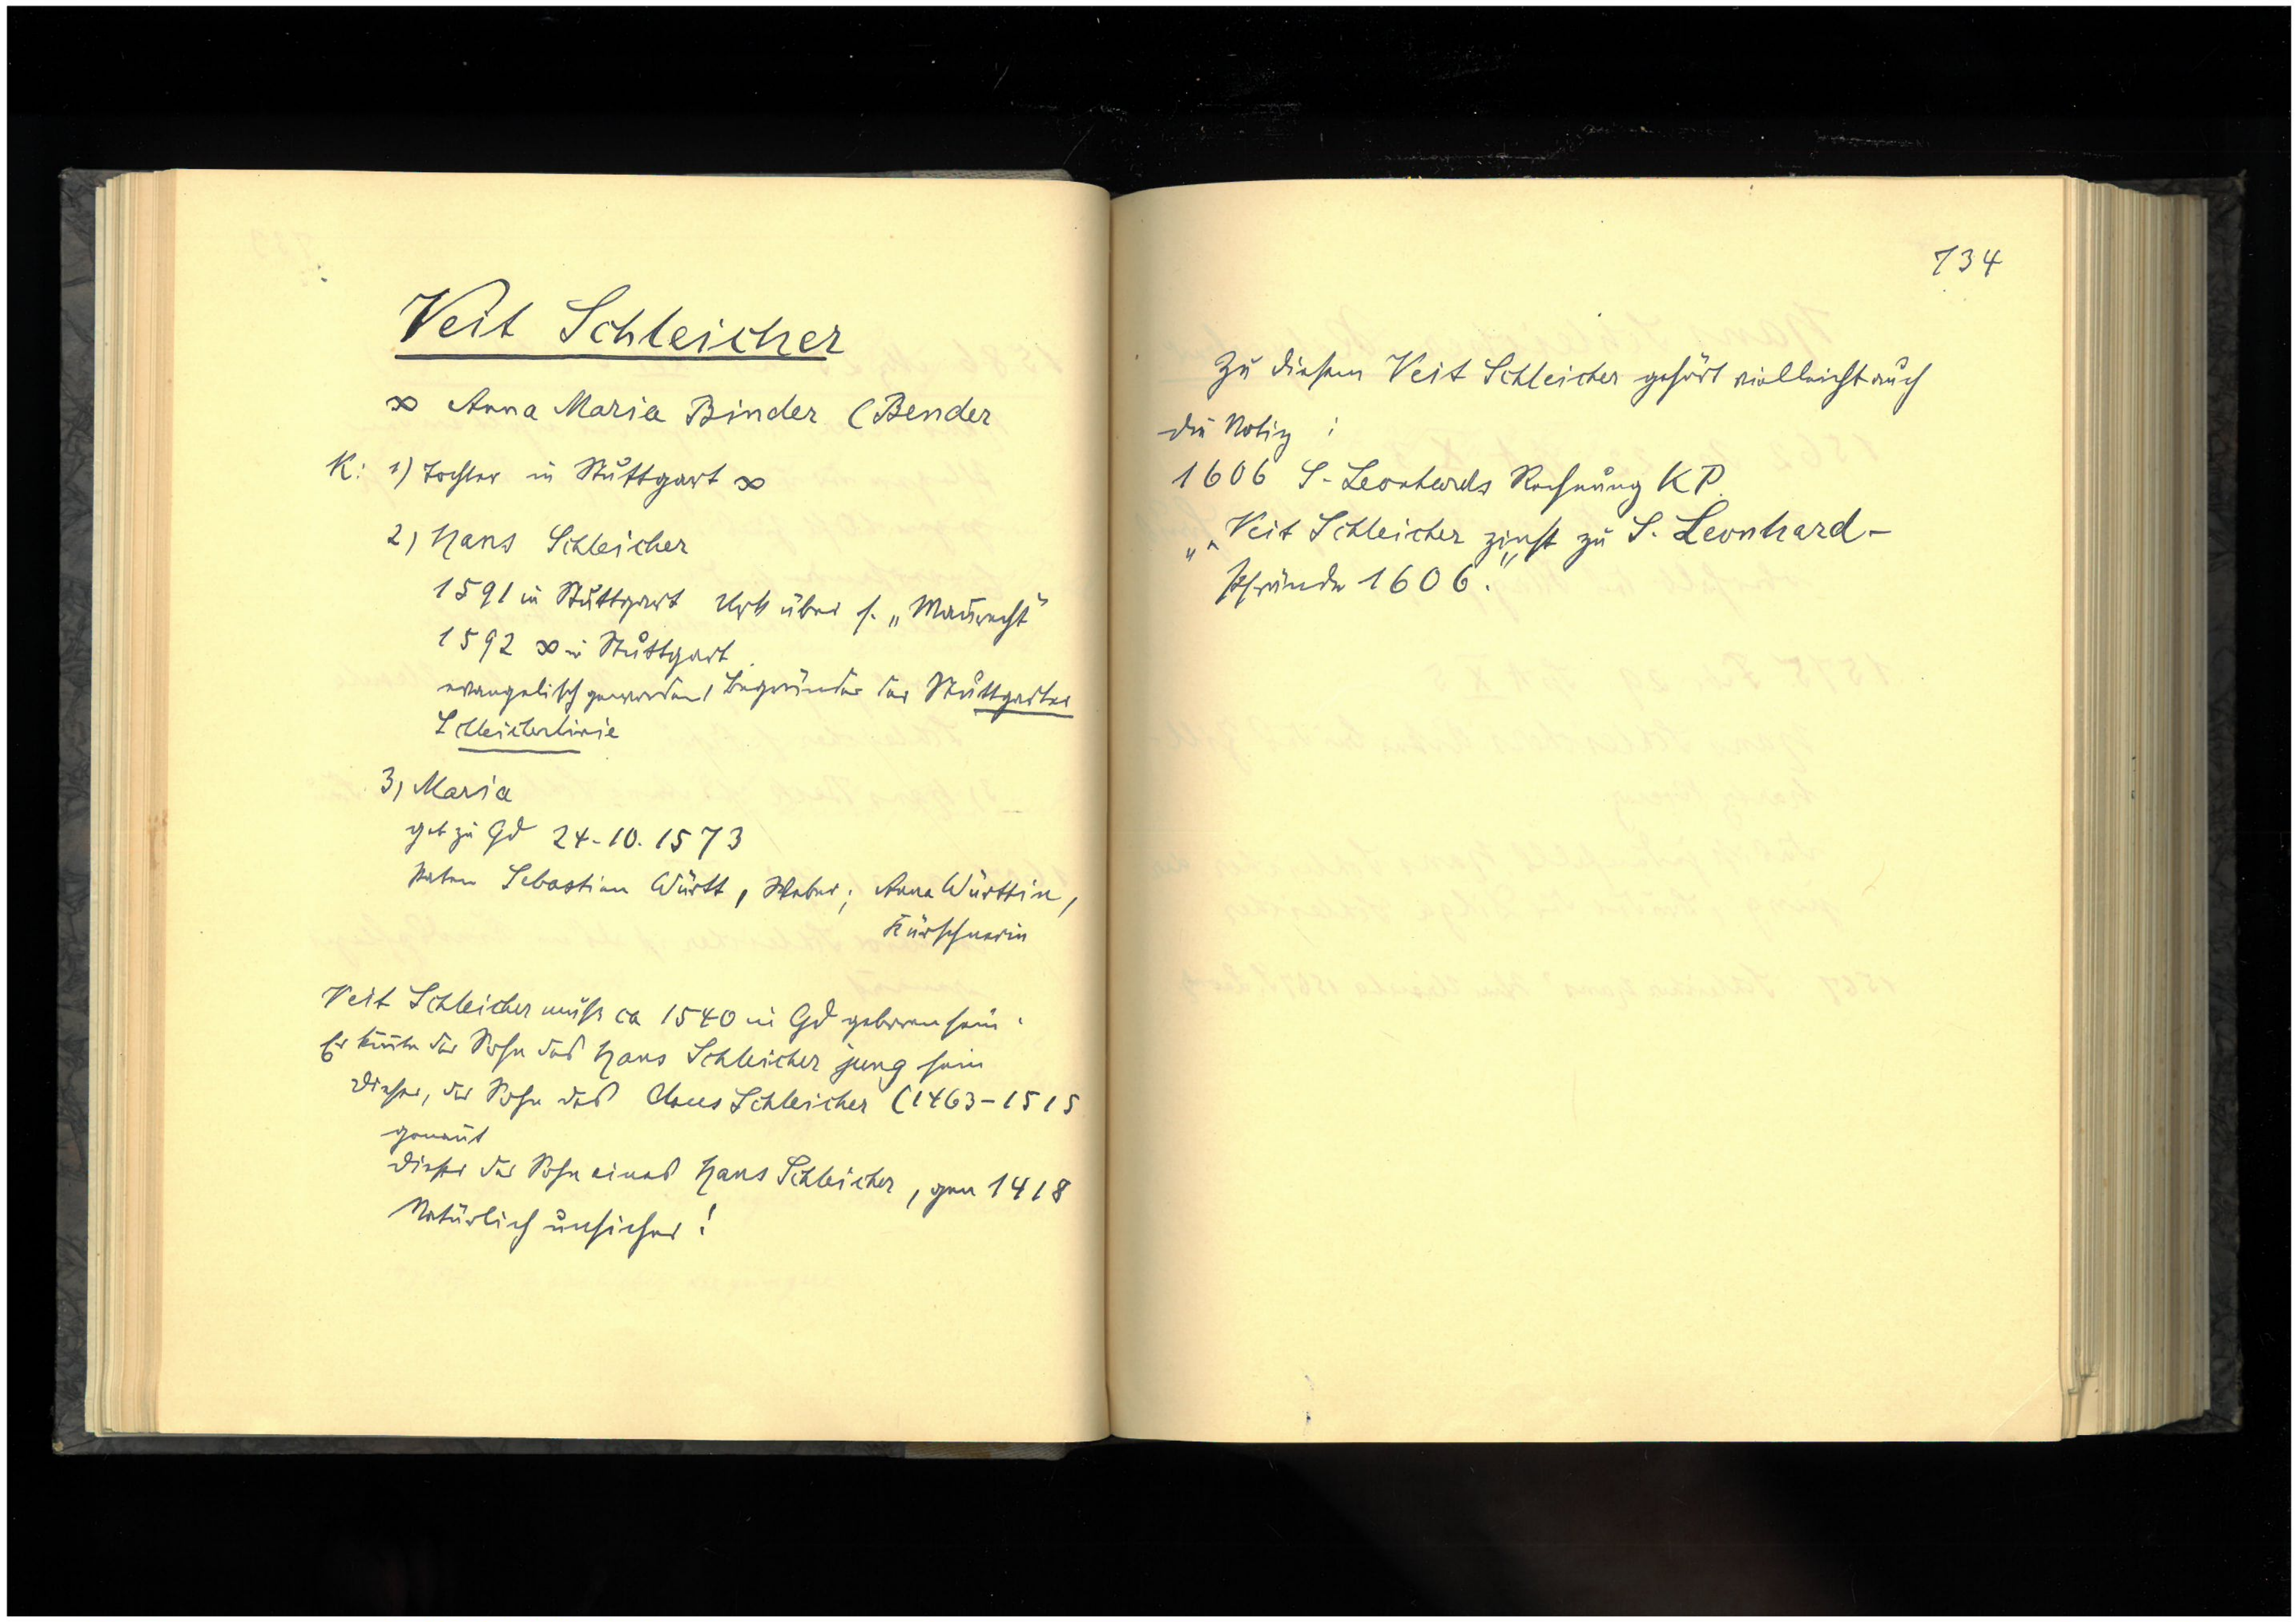 Veit Schleicher
∞ Anna Maria Binder (Bender
K: 1) Tochter in Stuttgart ∞
2) Hans Schleicher
1591 in Stuttgart Urk über s. „Mannrecht"
1592 ∞ in Stuttgart
evangelisch geworden, Begründer der Stuttgarter
Schleicherlinie
3) Maria
geb zu Gd 24-10.1573
Paten Sebastian Württ, Weber; Anna Württin,
Kürschnerin
Veit Schleicher muß ca 1540 in Gd geboren sein.
Er könnte der Sohn des Hans Schleicher jung sein
Dieser, der Sohn des Claus Schleicher (1463-1515
genannt
Dieser der Sohn eines Hans Schleicher, gen 1418
Natürlich unsicher!
134
Zu diesem Veit Schleicher gehört vielleicht auch
die Notiz :
1606 S-Leonhards Rechnung KP.
„Veit Schleicher zinst zu S. Leonhard-
pfründe 1606."